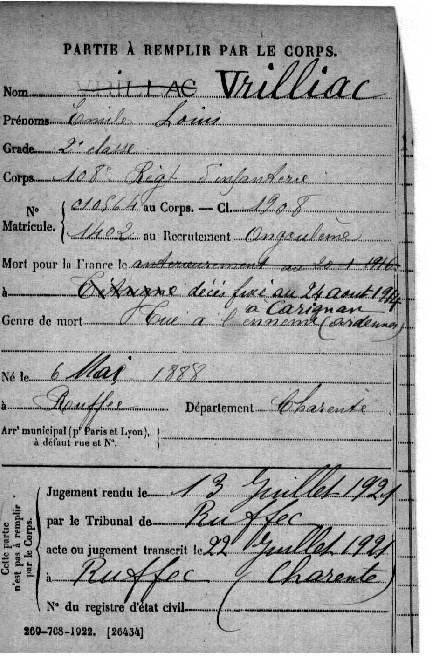 PARTIE À REMPLIR PAR LE CORPS.
Nom VRILLAC Vrilliac
Prénoms Emile Louis
Grade 2e classe
Corps 108e Regt d'infanterie
N° Matricule. 010564 au Corps. — Cl. 1908
1402 au Recrutement Angoulême
Mort pour la France le antérieurement au 20-1-1916
à décès fixé au 24 août 1914
à Carignan
Genre de mort Tué à l'ennemi (Ardennes)
Né le 6 Mai 1888
à Ruffec Département Charente
Arrt municipal (pr Paris et Lyon), à défaut rue et N°.
Cette partie n'est pas à remplir par le Corps.
Jugement rendu le 13 Juillet 1921
par le Tribunal de Ruffec
acte ou jugement transcrit le 22 Juillet 1921
à Ruffec (Charente)
N° du registre d'état civil
269-708-1922. [26434]